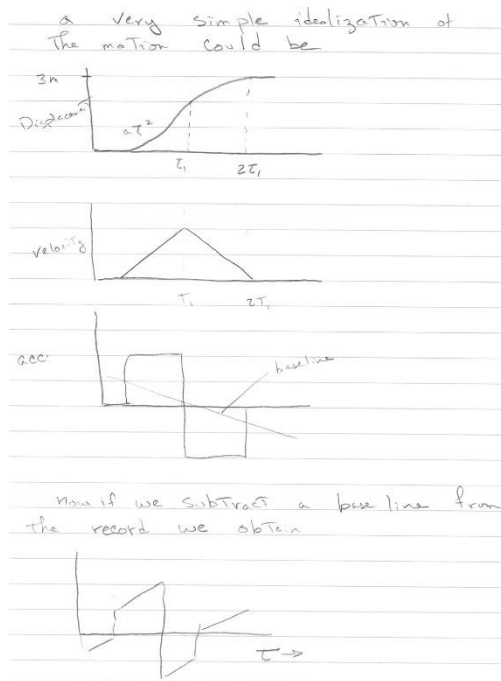 a very simple idealization of
the motion could be
3m
Displacement
aτ²
τ₁
2τ₁
velocity
τ₁
2τ₁
acc.
baseline
now if we subtract a base line from
the record we obtain
τ →